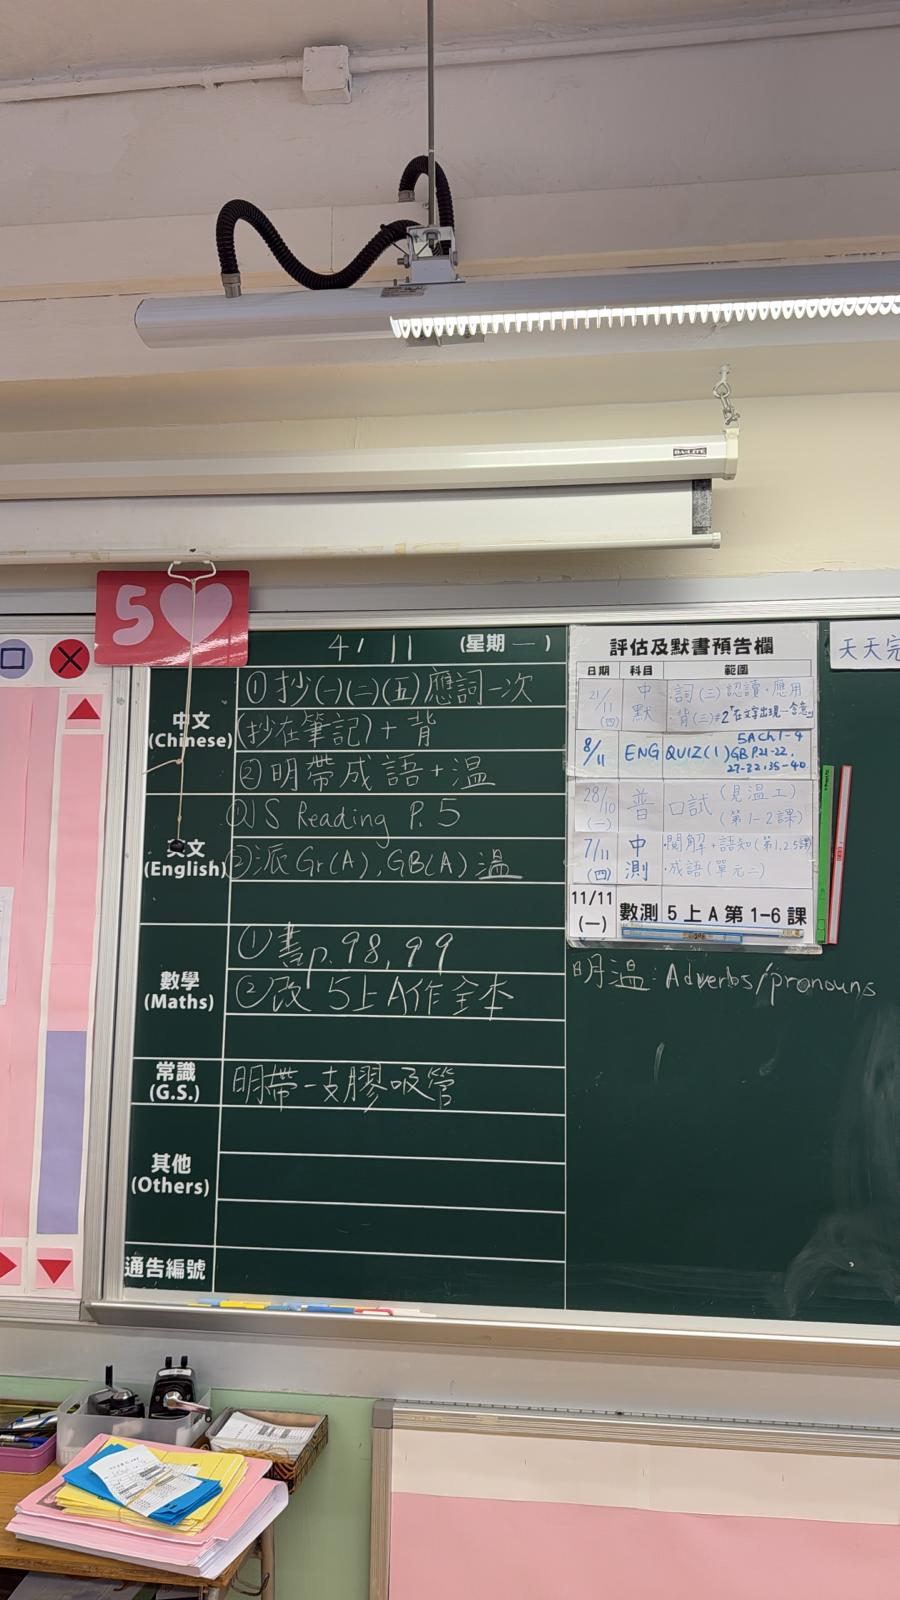 BALITE
5
4 / 11 (星期一)
中文
(Chinese)
①抄(一)(二)(五)應詞一次
(抄在筆記)+背
②明帶成語+溫
英文
(English)
①JS Reading P. 5
②派Gr(A), GB(A) 溫
數學
(Maths)
①書p.98, 99
②改 5上A作全本
常識
(G.S.)
明帶一支膠吸管
其他
(Others)
通告編號
評估及默書預告欄
日期 科目 範圍
21/11 (四) 中默 ·詞(三)認讀·應用
·背(三)#2「在文字出現
8/11 ENG QUIZ(1) 5A Ch 1-4
GB P.21-22,
27-32, 35-40
28/10 (一) 普 口試 (見溫工)
(第1-2課)
7/11 (四) 中測 ·閱解+語知(第1.2.5課)
·成語(單元二)
11/11 (一) 數測 5上A第1-6課
天天完
明溫: Adverbs/pronouns